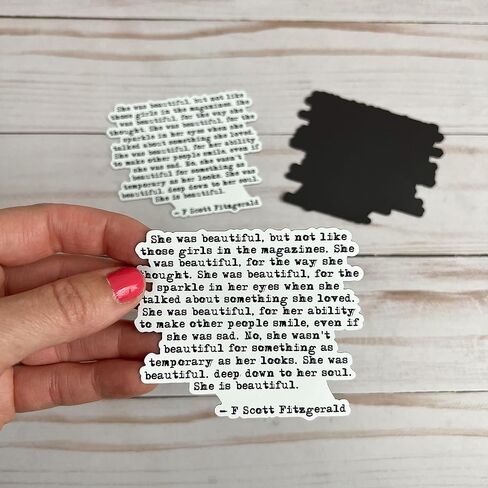 She was beautiful, but not like
those girls in the magazines. She
was beautiful, for the way she
thought. She was beautiful, for the
sparkle in her eyes when she
talked about something she loved.
She was beautiful, for her ability
to make other people smile, even if
she was sad. No, she wasn't
beautiful for something as
temporary as her looks. She was
beautiful, deep down to her soul.
She is beautiful.
– F Scott Fitzgerald
She was beautiful, but not like
those girls in the magazines. She
was beautiful, for the way she
thought. She was beautiful, for the
sparkle in her eyes when she
talked about something she loved.
She was beautiful, for her ability
to make other people smile, even if
she was sad. No, she wasn't
beautiful for something as
temporary as her looks. She was
beautiful. deep down to her soul.
She is beautiful.
– F Scott Fitzgerald